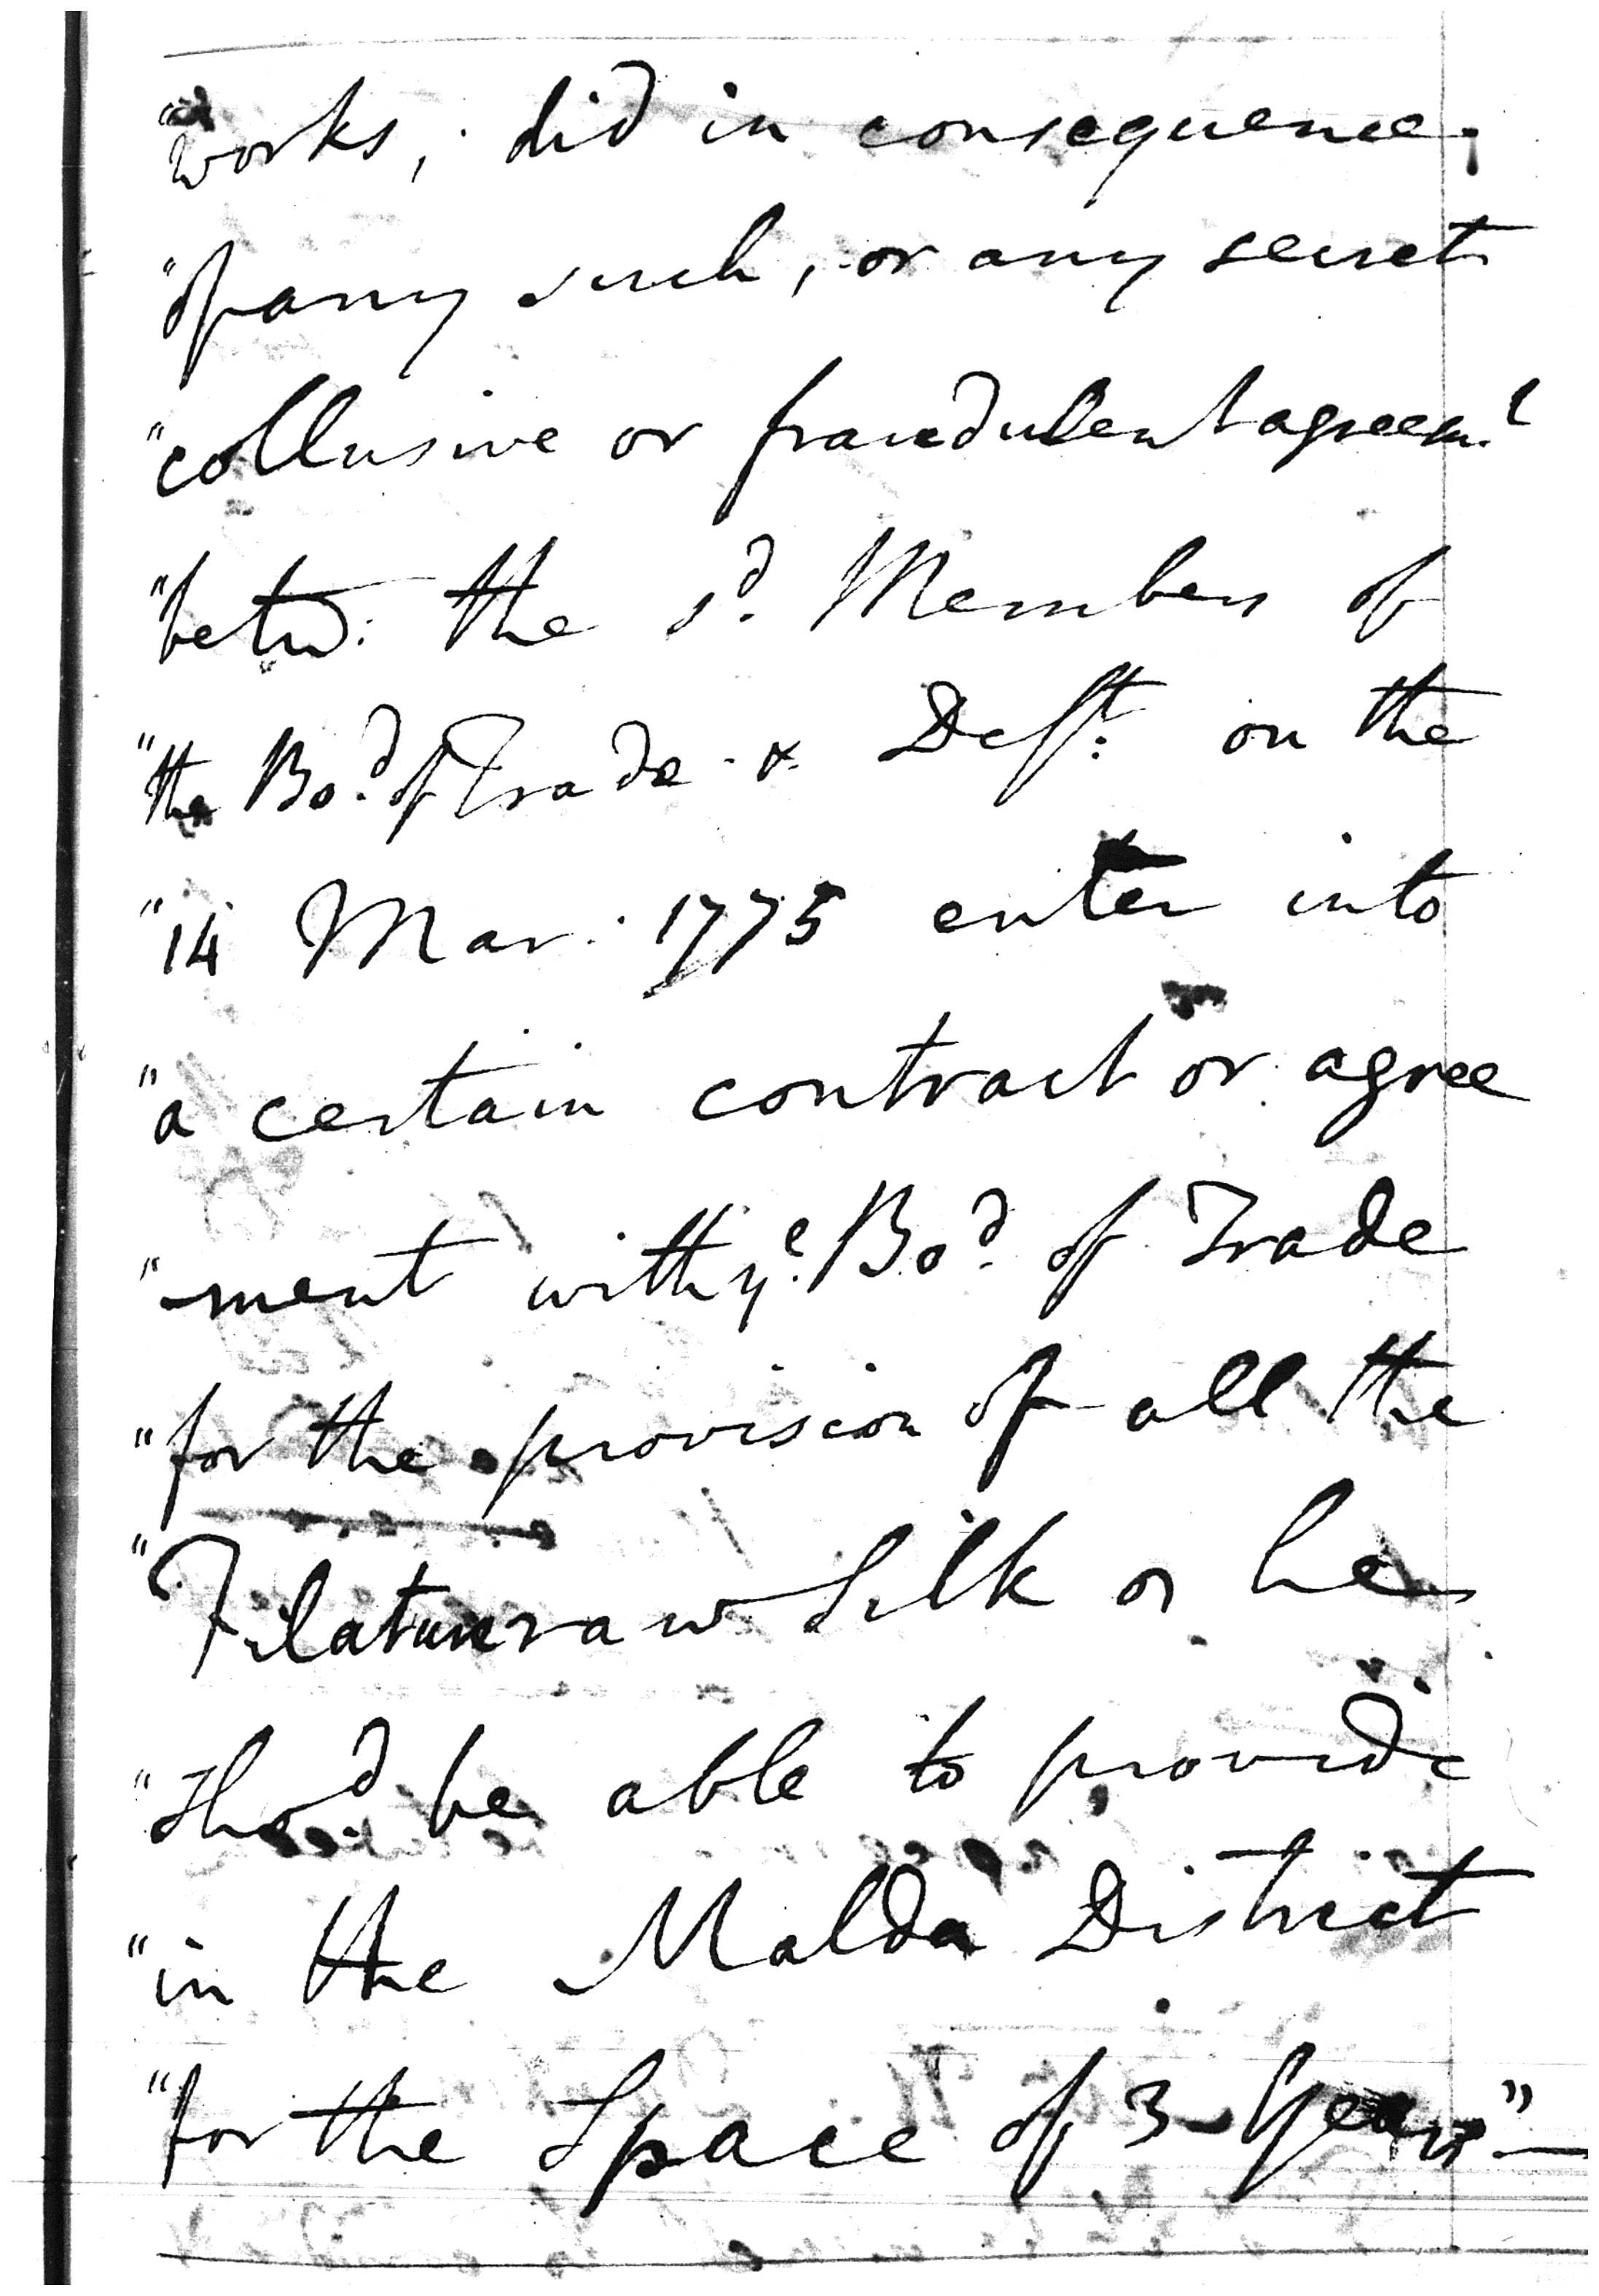 "works, did in consequence
"of any such, or any secret
"collusive or fraudulent agreem.t
"betw: the s.d Members of
"the Bo.d of Trade & Deft: on the
"14 Mar. 1775 enter into
"a certain contract or agree
"-ment with y.e Bo.d of Trade
"for the provision of all the
"Filature raw Silk or he
"sho.d be able to provide
"in the Malda District
"for the Space of 3 Years"—